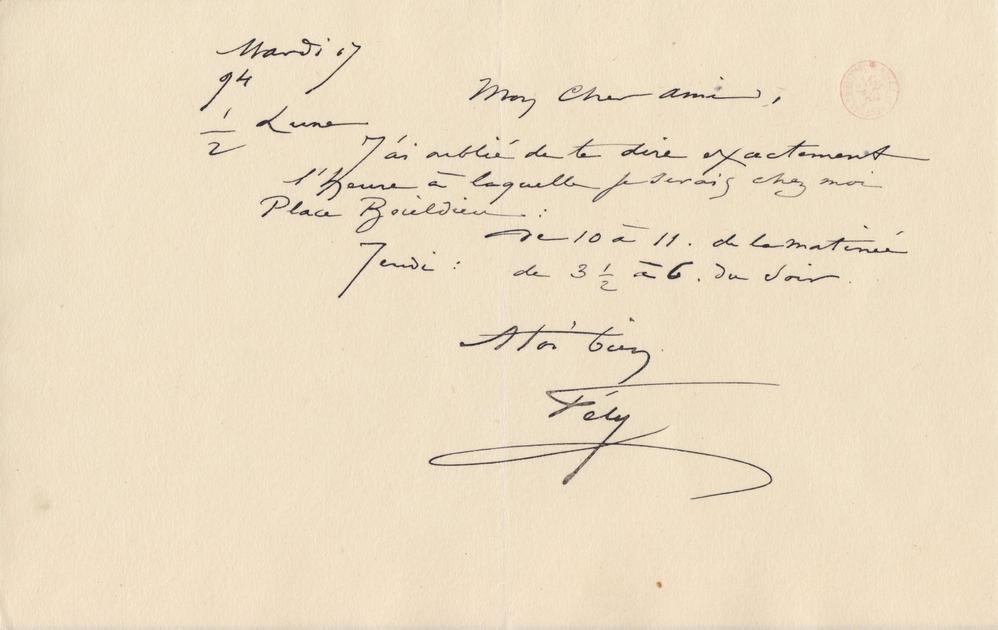 Mardi 17
94
1/2 Lune
Mon Cher ami,
J'ai oublié de te dire exactement
l'heure à laquelle je serais chez moi
Place Boieldieu :
de 10 à 11. de la matinée
Jeudi : de 3 1/2 à 6. du soir.
A toi bien
Fély